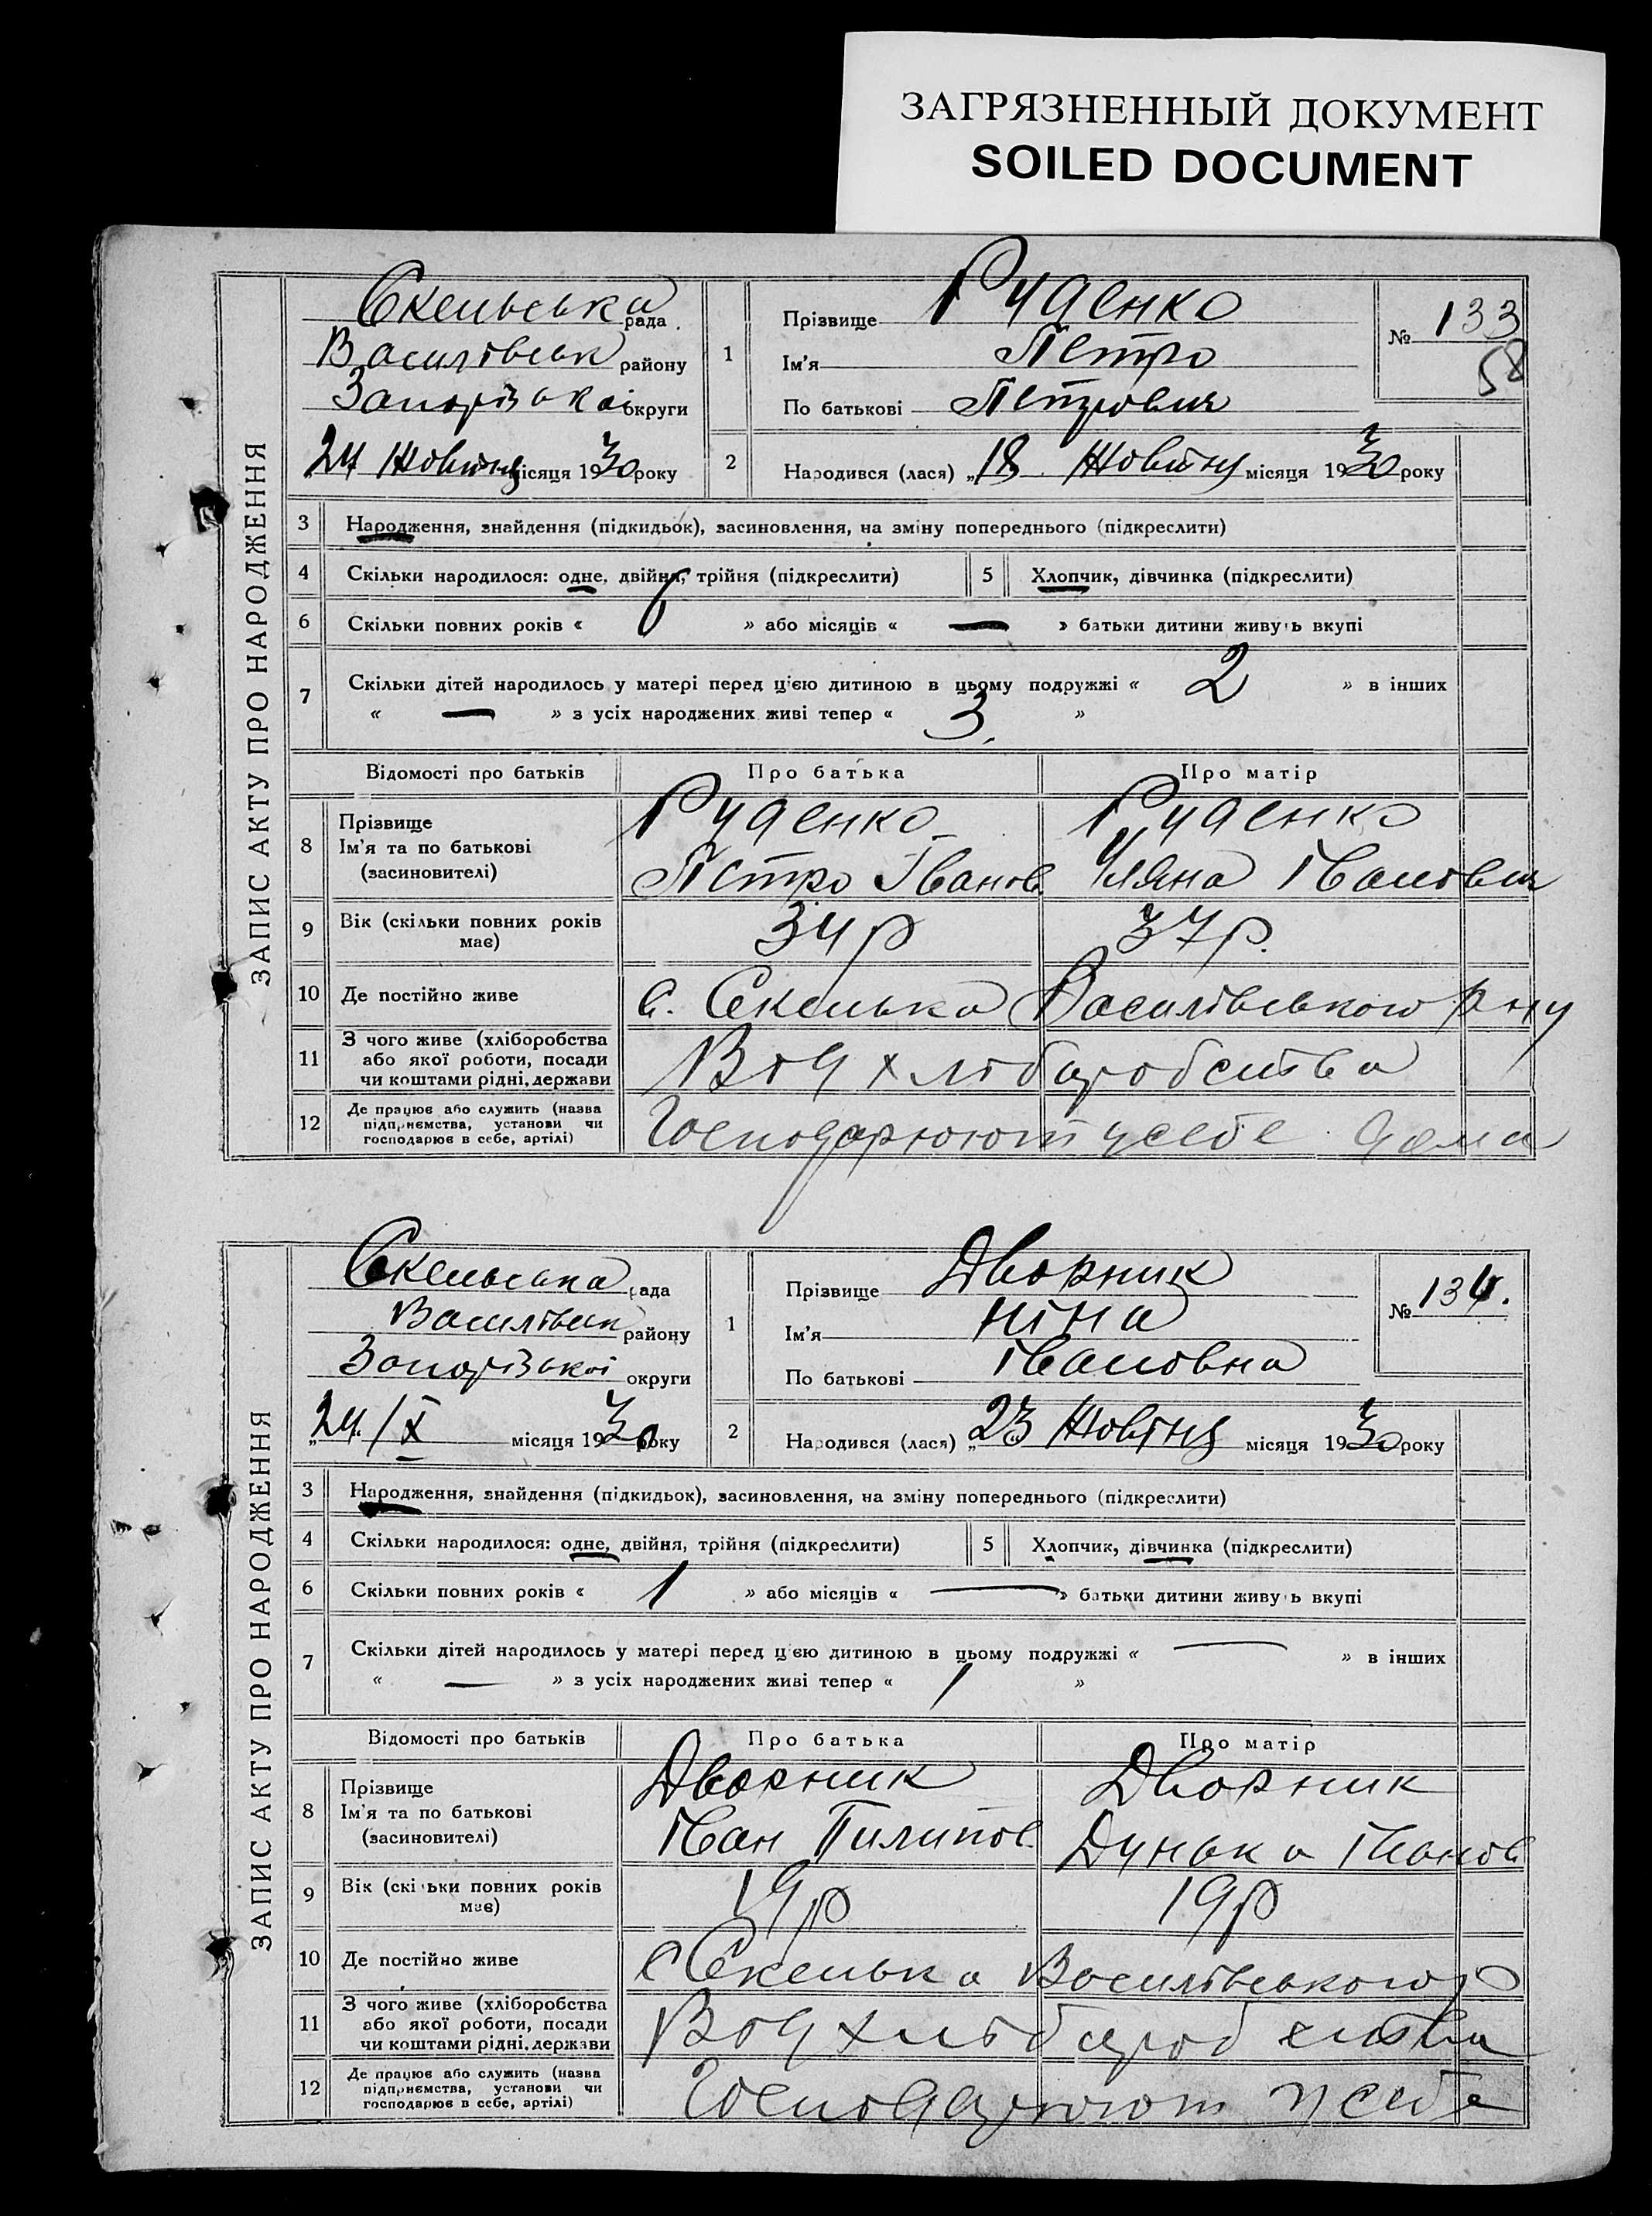 ЗАГРЯЗНЕННЫЙ ДОКУМЕНТ
SOILED DOCUMENT
ЗАПИС АКТУ ПРО НАРОДЖЕННЯ
Скельська рада
Василівськ району
Запорізької округи
24 Жовтня місяця 1930 року
1
Прізвище Руденко
Ім'я Петро
По батькові Петрович
№ 133
58
2
Народився (лася) „18 Жовтня місяця 1930 року
3 Народження, знайдення (підкидьок), засиновлення, на зміну попереднього (підкреслити)
4 Скільки народилося: одне, двійня, трійня (підкреслити) 5 Хлопчик, дівчинка (підкреслити)
6 Скільки повних років « 6 » або місяців « — » батьки дитини живуть вкупі
7 Скільки дітей народилось у матері перед цією дитиною в цьому подружжі « 2 » в інших
« — » з усіх народжених живі тепер « 3. »
Відомості про батьків Про батька Про матір
8 Прізвище Ім'я та по батькові (засиновителі)
Руденко Руденко
Петро Іванов. Уляна Івановна
9 Вік (скільки повних років має) 34 р 37 р.
10 Де постійно живе с. Скелька Василівського р-ну
11 З чого живе (хліборобства або якої роботи, посади чи коштами рідні, держави Від хліборобства
12 Де працює або служить (назва підприємства, установи чи господарює в себе, артілі) Господарюют у себе дома
ЗАПИС АКТУ ПРО НАРОДЖЕННЯ
Скельська рада
Василівськ району
Запорізької округи
„24./X місяця 1930 року
1
Прізвище Дворник
Ім'я Ніна
По батькові Івановна
№ 134.
2
Народився (лася) „23 Жовтня місяця 1930 року
3 Народження, знайдення (підкидьок), засиновлення, на зміну попереднього (підкреслити)
4 Скільки народилося: одне, двійня, трійня (підкреслити) 5 Хлопчик, дівчинка (підкреслити)
6 Скільки повних років « 1 » або місяців « — » батьки дитини живуть вкупі
7 Скільки дітей народилось у матері перед цією дитиною в цьому подружжі « — » в інших
« — » з усіх народжених живі тепер « 1 »
Відомості про батьків Про батька Про матір
8 Прізвище Ім'я та по батькові (засиновителі)
Дворник Дворник
Іван Пилипов. Дунька Іванов
9 Вік (скільки повних років має) 19 р 19 р
10 Де постійно живе с Скелька Василівського р
11 З чого живе (хліборобства або якої роботи, посади чи коштами рідні, держави Від хліборобства
12 Де працює або служить (назва підприємства, установи чи господарює в себе, артілі) Господарюют у себе